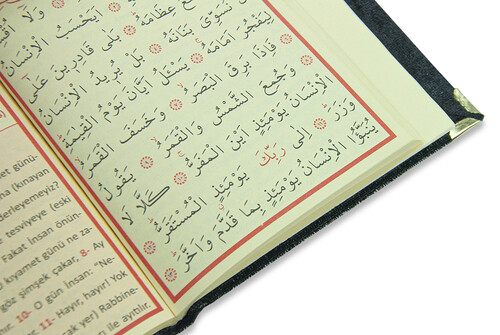 وَلَا
اَيَحْسَبُ الْاِنْسَانُ
عِظَامَهُ بَلٰى قَادِرِينَ عَلٰى
نُسَوِّيَ بَنَانَهُ بَلْ يُرِيدُ الْاِنْسَانُ
لِيَفْجُرَ اَمَامَهُ يَسْـَٔلُ اَيَّانَ يَوْمُ الْقِيٰمَةِ
فَاِذَا بَرِقَ الْبَصَرُ وَخَسَفَ الْقَمَرُ
وَجُمِعَ الشَّمْسُ وَالْقَمَرُ يَقُولُ
الْاِنْسَانُ يَوْمَئِذٍ اَيْنَ الْمَفَرُّ كَلَّا لَا
وَزَرَ اِلٰى رَبِّكَ يَوْمَئِذٍ الْمُسْتَقَرُّ
يُنَبَّؤُا الْاِنْسَانُ يَوْمَئِذٍ بِمَا قَدَّمَ وَاَخَّرَ
et günü-
(kınayan
derleyemeyiz?
tesviyeye (eski
Fakat insan önün-
kıyamet günü ne za-
göz şimşek çakar, 8- Ay
10- O gün insan: "Ne-
11- Hayır, hayır! Yok
yer) Rabbine-
ile